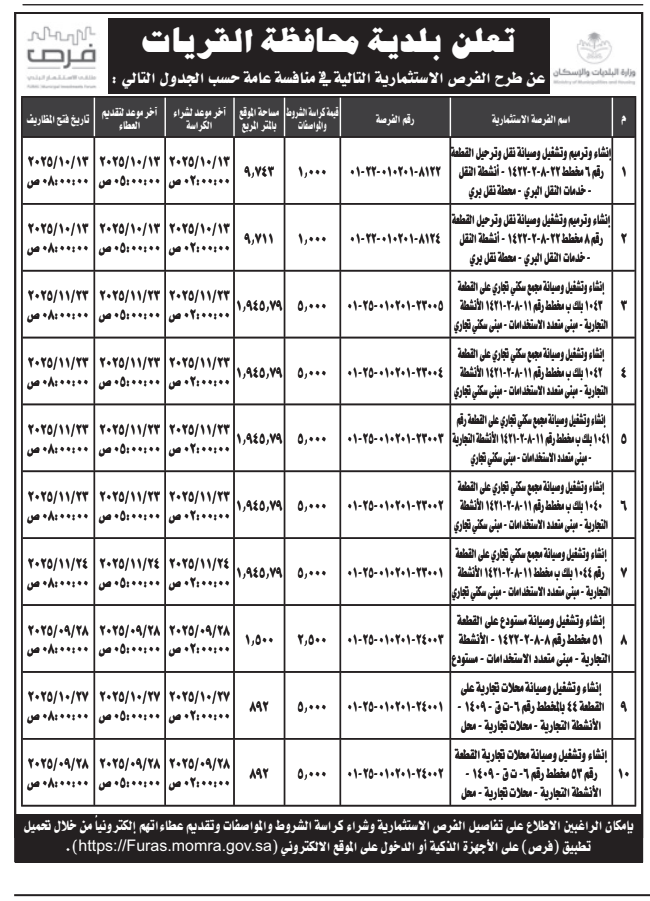 تعلن بلدية محافظة القريات
عن طرح الفرص الاستثمارية التالية في منافسة عامة حسب الجدول التالي :
فرص
وزارة البلديات والإسكان
م | اسم الفرصة الاستثمارية | رقم الفرصة | قيمة كراسة الشروط والمواصفات | مساحة الموقع بالمتر المربع | آخر موعد لشراء الكراسة | آخر موعد لتقديم العطاء | تاريخ فتح المظاريف
١ | إنشاء وترميم وتشغيل وصيانة نقل وترحيل القطعة رقم ٦ مخطط ٢٢-٨-٢-١٤٢٢ - أنشطة النقل - خدمات النقل البري - محطة نقل بري | ٠١-٢٢-٠١٠٢٠١-٨١٢٢ | ١,٠٠٠ | ٩,٧٤٣ | ٢٠٢٥/١٠/١٣ ٠٢:٠٠:٠٠ ص | ٢٠٢٥/١٠/١٣ ٠٥:٠٠:٠٠ ص | ٢٠٢٥/١٠/١٣ ٠٨:٠٠:٠٠ ص
٢ | إنشاء وترميم وتشغيل وصيانة نقل وترحيل القطعة رقم ٨ مخطط ٢٢-٨-٢-١٤٢٢ - أنشطة النقل - خدمات النقل البري - محطة نقل بري | ٠١-٢٢-٠١٠٢٠١-٨١٢٤ | ١,٠٠٠ | ٩,٧١١ | ٢٠٢٥/١٠/١٣ ٠٢:٠٠:٠٠ ص | ٢٠٢٥/١٠/١٣ ٠٥:٠٠:٠٠ ص | ٢٠٢٥/١٠/١٣ ٠٨:٠٠:٠٠ ص
٣ | إنشاء وتشغيل وصيانة مجمع سكني تجاري على القطعة ١٠٤٣ بلك ب مخطط رقم ١١-٨-٢-١٤٢١ الأنشطة التجارية - مبنى متعدد الاستخدامات - مبنى سكني تجاري | ٠١-٢٥-٠١٠٢٠١-٢٣٠٠٥ | ٥,٠٠٠ | ١,٩٤٥,٧٩ | ٢٠٢٥/١١/٢٣ ٠٢:٠٠:٠٠ ص | ٢٠٢٥/١١/٢٣ ٠٥:٠٠:٠٠ ص | ٢٠٢٥/١١/٢٣ ٠٨:٠٠:٠٠ ص
٤ | إنشاء وتشغيل وصيانة مجمع سكني تجاري على القطعة ١٠٤٢ بلك ب مخطط رقم ١١-٨-٢-١٤٢١ الأنشطة التجارية - مبنى متعدد الاستخدامات - مبنى سكني تجاري | ٠١-٢٥-٠١٠٢٠١-٢٣٠٠٤ | ٥,٠٠٠ | ١,٩٤٥,٧٩ | ٢٠٢٥/١١/٢٣ ٠٢:٠٠:٠٠ ص | ٢٠٢٥/١١/٢٣ ٠٥:٠٠:٠٠ ص | ٢٠٢٥/١١/٢٣ ٠٨:٠٠:٠٠ ص
٥ | إنشاء وتشغيل وصيانة مجمع سكني تجاري على القطعة رقم ١٠٤١ بلك ب مخطط رقم ١١-٨-٢-١٤٢١ الأنشطة التجارية - مبنى متعدد الاستخدامات - مبنى سكني تجاري | ٠١-٢٥-٠١٠٢٠١-٢٣٠٠٣ | ٥,٠٠٠ | ١,٩٤٥,٧٩ | ٢٠٢٥/١١/٢٣ ٠٢:٠٠:٠٠ ص | ٢٠٢٥/١١/٢٣ ٠٥:٠٠:٠٠ ص | ٢٠٢٥/١١/٢٣ ٠٨:٠٠:٠٠ ص
٦ | إنشاء وتشغيل وصيانة مجمع سكني تجاري على القطعة ١٠٤٠ بلك ب مخطط رقم ١١-٨-٢-١٤٢١ الأنشطة التجارية - مبنى متعدد الاستخدامات - مبنى سكني تجاري | ٠١-٢٥-٠١٠٢٠١-٢٣٠٠٢ | ٥,٠٠٠ | ١,٩٤٥,٧٩ | ٢٠٢٥/١١/٢٣ ٠٢:٠٠:٠٠ ص | ٢٠٢٥/١١/٢٣ ٠٥:٠٠:٠٠ ص | ٢٠٢٥/١١/٢٣ ٠٨:٠٠:٠٠ ص
٧ | إنشاء وتشغيل وصيانة مجمع سكني تجاري على القطعة رقم ١٠٤٤ بلك ب مخطط ١١-٨-٢-١٤٢١ الأنشطة التجارية - مبنى متعدد الاستخدامات - مبنى سكني تجاري | ٠١-٢٥-٠١٠٢٠١-٢٣٠٠١ | ٥,٠٠٠ | ١,٩٤٥,٧٩ | ٢٠٢٥/١١/٢٤ ٠٢:٠٠:٠٠ ص | ٢٠٢٥/١١/٢٤ ٠٥:٠٠:٠٠ ص | ٢٠٢٥/١١/٢٤ ٠٨:٠٠:٠٠ ص
٨ | إنشاء وتشغيل وصيانة مستودع على القطعة ٥١ مخطط رقم ٨-٨-٢-١٤٢٢ - الأنشطة التجارية - مبنى متعدد الاستخدامات - مستودع | ٠١-٢٥-٠١٠٢٠١-٢٤٠٠٣ | ٢,٥٠٠ | ١,٥٠٠ | ٢٠٢٥/٠٩/٢٨ ٠٢:٠٠:٠٠ ص | ٢٠٢٥/٠٩/٢٨ ٠٥:٠٠:٠٠ ص | ٢٠٢٥/٠٩/٢٨ ٠٨:٠٠:٠٠ ص
٩ | إنشاء وتشغيل وصيانة محلات تجارية على القطعة ٤٤ بالمخطط رقم ٦- ت ق - ١٤٠٩ - الأنشطة التجارية - محلات تجارية - محل | ٠١-٢٥-٠١٠٢٠١-٢٤٠٠١ | ٥,٠٠٠ | ٨٩٢ | ٢٠٢٥/١٠/٢٧ ٠٢:٠٠:٠٠ ص | ٢٠٢٥/١٠/٢٧ ٠٥:٠٠:٠٠ ص | ٢٠٢٥/١٠/٢٧ ٠٨:٠٠:٠٠ ص
١٠ | إنشاء وتشغيل وصيانة محلات تجارية القطعة رقم ٥٣ مخطط رقم ٦- ت ق - ١٤٠٩ - الأنشطة التجارية - محلات تجارية - محل | ٠١-٢٥-٠١٠٢٠١-٢٤٠٠٢ | ٥,٠٠٠ | ٨٩٢ | ٢٠٢٥/٠٩/٢٨ ٠٢:٠٠:٠٠ ص | ٢٠٢٥/٠٩/٢٨ ٠٥:٠٠:٠٠ ص | ٢٠٢٥/٠٩/٢٨ ٠٨:٠٠:٠٠ ص
بإمكان الراغبين الاطلاع على تفاصيل الفرص الاستثمارية وشراء كراسة الشروط والمواصفات وتقديم عطاءاتهم إلكترونياً من خلال تحميل
تطبيق (فرص) على الأجهزة الذكية أو الدخول على الموقع الالكتروني (https://Furas.momra.gov.sa) .